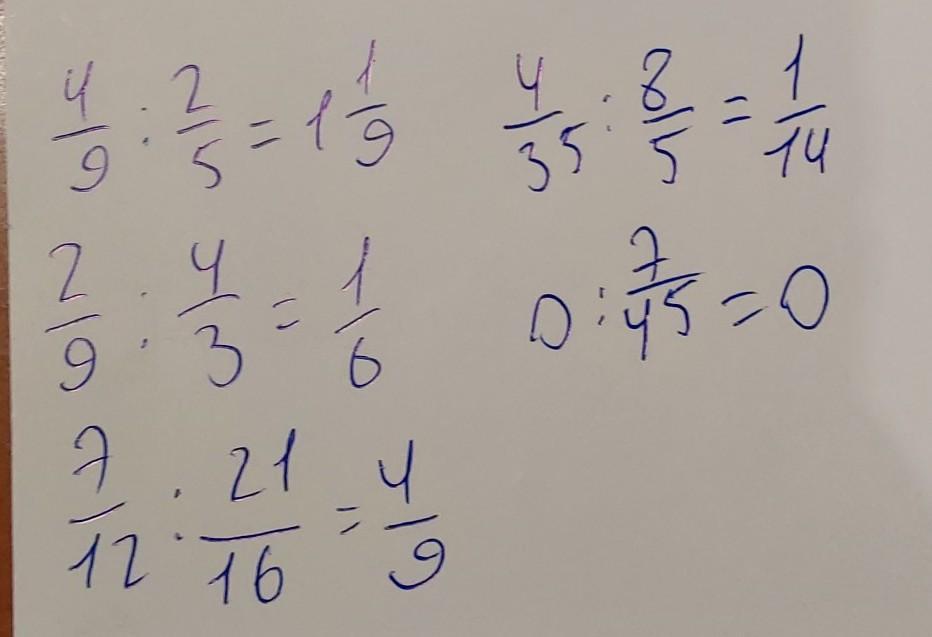 4/9 : 2/5 = 1 1/9
4/35 : 8/5 = 1/14
2/9 : 4/3 = 1/6
0 : 7/45 = 0
7/12 : 21/16 = 4/9